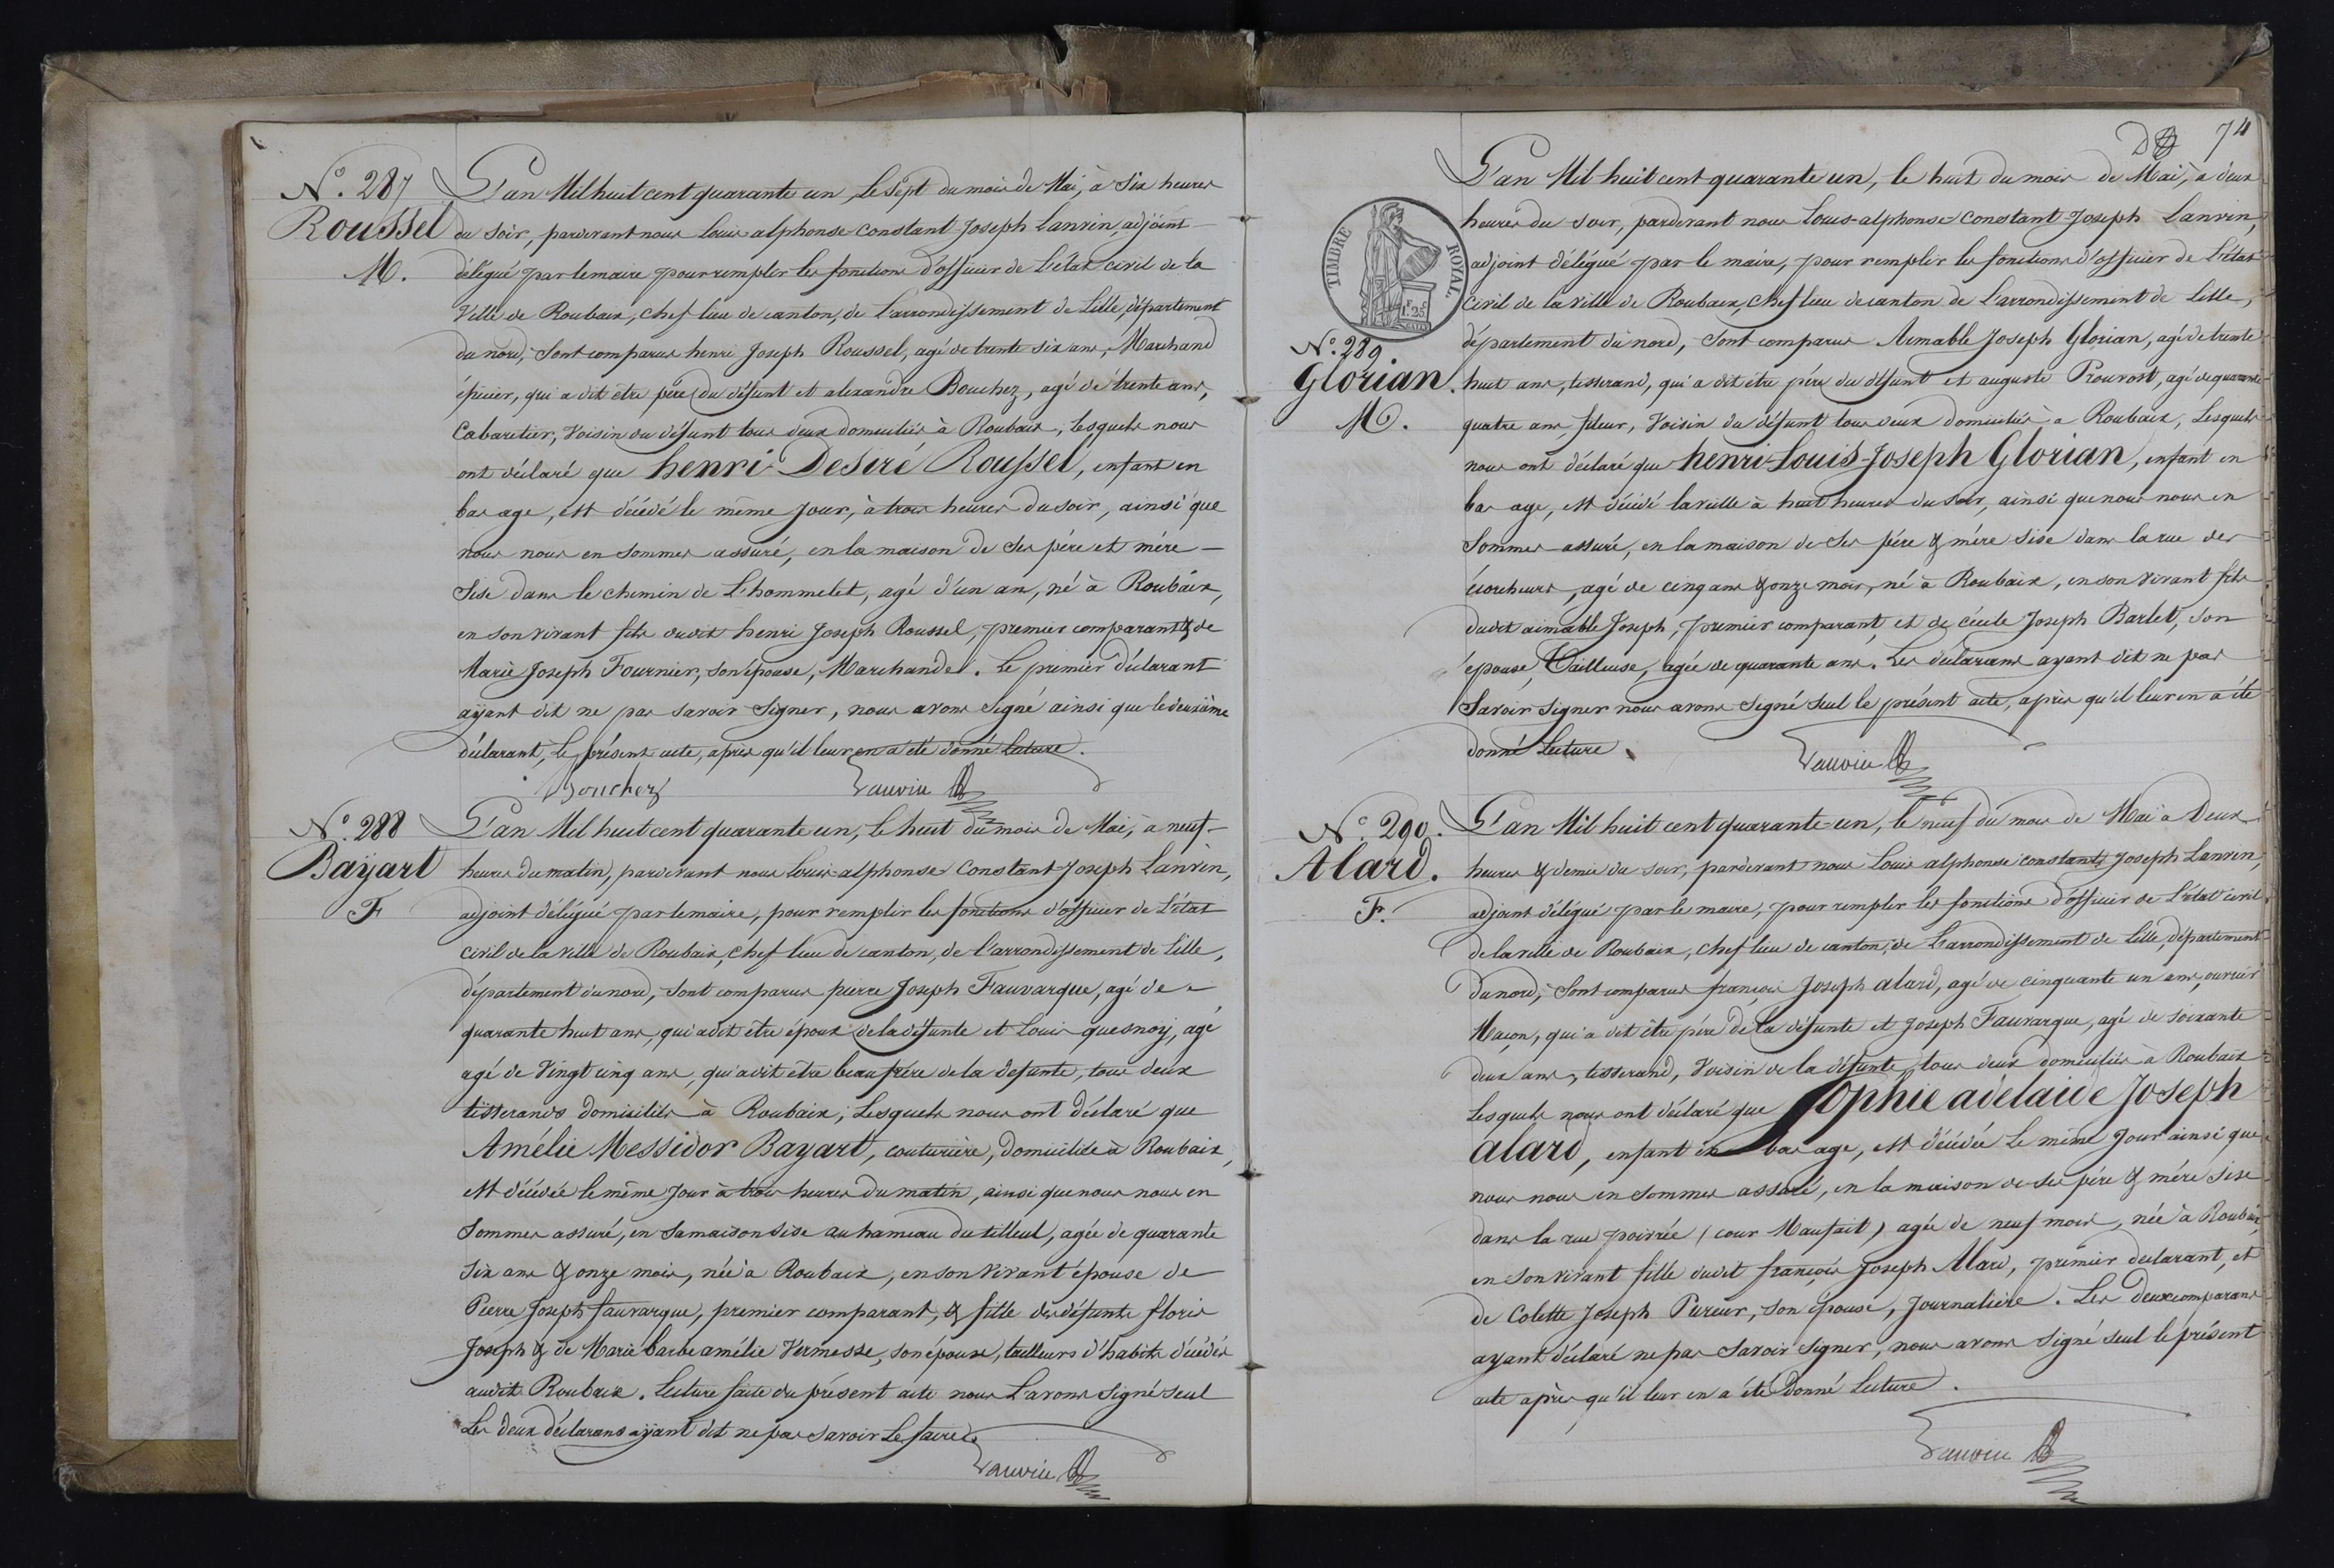 N.° 287
Roussel
M.
L'an Mil huit cent quarante un, le Sept du mois de Mai, à Six heures
du soir, pardevant nous Louis alphonse constant Joseph Lanvin, adjoint
délégué par le maire pour remplir les fonctions d'officier de L'état civil de la
Ville de Roubaix, chef lieu de canton, de L'arrondissement de Lille, département
du nord, Sont comparus henri Joseph Roussel, agé de trente six ans, Marchand
épicier, qui a dit être père du défunt et alexandre Bouchez, agé de trente ans,
Cabaretier, Voisin du défunt tous deux domiciliés à Roubaix, Lesquels nous
ont déclaré que henri Desiré Roussel, enfant en
bas age, est décédé le même jour, à trois heures du soir, ainsi que
nous nous en sommes assuré, en la maison de Ses père et mère
Sise dans le chemin de L'hommelet, agé d'un an, né à Roubaix,
en son vivant fils dudit henri Joseph Roussel, premier comparant & de
Marie Joseph Fournier, son épouse, Marchande. Le premier déclarant
ayant dit ne pas savoir signer, nous avons signé ainsi que le deuxième
déclarant, le présent acte, après qu'il leur en a été donné lecture.
Bouchez Lanvin
N.° 288
Bayart
F
L'an Mil huit cent quarante un, le huit du mois de Mai, à neuf
heures du matin, pardevant nous Louis alphonse Constant Joseph Lanvin,
adjoint délégué par le maire, pour remplir les fonctions d'officier de L'état
civil de la ville de Roubaix, chef lieu de canton, de l'arrondissement de Lille,
département du nord, sont comparus pierre Joseph Fauvarque, agé de
quarante huit ans, qui a dit être époux de la défunte et Louis quesnoy, agé
agé de Vingt cinq ans, qui a dit être beau frère de la défunte, tous deux
tisserands domiciliés à Roubaix, Lesquels nous ont déclaré que
Amélie Messidor Bayart, couturière, domiciliée à Roubaix,
est décédée le même Jour à trois heures du matin, ainsi que nous nous en
Sommes assuré, en Sa maison Sise au hameau du tilleul, agée de quarante
Six ans & onze mois, née à Roubaix, en son vivant épouse de
Pierre Joseph fauvarque, premier comparant, & fille des défunts floris
Joseph & de Marie barbe amélie Vermesse, son épouse, tailleurs d'habits décédés
audit Roubaix. Lecture faite du présent acte nous L'avons signé seul
Les deux déclarans ayant dit ne pas savoir Le faire.
Lanvin
74
TIMBRE ROYAL
N.° 289.
Glorian.
M.
L'an Mil huit cent quarante un, le huit du mois de Mai, à deux
heures du soir, pardevant nous Louis-alphonse Constant Joseph Lanvin,
adjoint délégué par le maire, pour remplir les fonctions d'officier de L'état
Civil de la ville de Roubaix, Chef lieu de canton de l'arrondissement de Lille,
département du nord, Sont comparus Aimable Joseph Glorian, agé de trente
huit ans, tisserand, qui a dit être père du défunt et auguste Prouvost, agé de quarante
quatre ans, fileur, Voisin du défunt tous deux domiciliés à Roubaix, Lesquels
nous ont déclaré que henri-Louis-Joseph Glorian, enfant en
bas age, est décédé la veille à huit heures du soir, ainsi que nous nous en
Sommes assuré, en la maison de Ses père & mère sise dans la rue des
écorcheurs, agé de cinq ans & onze mois, né à Roubaix, en son vivant fils
dudit aimable Joseph, premier comparant, et de cécile Joseph Barlet, son
épouse, Tailleuse, agée de quarante ans. Les déclarans ayant dit ne pas
Savoir signer nous avons signé seul le présent acte, après qu'il leur en a été
donné lecture.
Lanvin
N.° 290.
Alard.
F.
L'an Mil huit cent quarante-un, le neuf du mois de Mai à Deux
heures & demie du soir, pardevant nous Louis alphonse constant Joseph Lanvin,
adjoint délégué par le maire, pour remplir les fonctions d'officier de L'état civil
de la ville de Roubaix, chef lieu de canton, de L'arrondissement de Lille, département
du nord, Sont comparus françois Joseph alard, agé de cinquante un ans, ouvrier
Maçon, qui a dit être père de la défunte et Joseph Fauvarque, agé de soixante
deux ans, tisserand, Voisin de la défunte, tous deux domiciliés à Roubaix
Lesquels nous ont déclaré que Sophie adelaide Joseph
alard, enfant en bas age, est décédée Le même Jour ainsi que
nous nous en sommes assuré, en la maison de Ses père & mère sise
dans la rue poivrée (cour Maufait) agée de neuf mois, née à Roubaix,
en son vivant fille dudit françois Joseph Alard, premier déclarant, et
de Colette Joseph Pureur, son épouse, Journalière. Les deux comparans
ayant déclaré ne pas Savoir signer, nous avons signé seul le présent
acte après qu'il leur en a été donné Lecture.
Lanvin